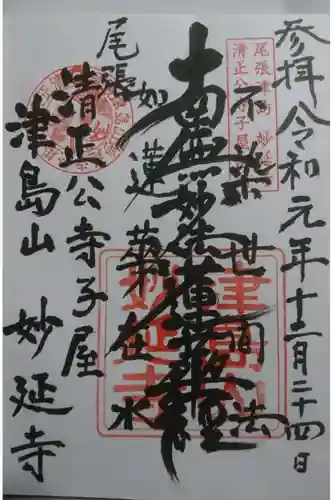 参拝令和元年十二月二十四日
尾張津島 妙延
清正公寺子屋
不染世間法
南無妙法蓮華経
如蓮華在水
尾張
清正公寺子屋
津島山 妙延寺
津島山
妙延寺